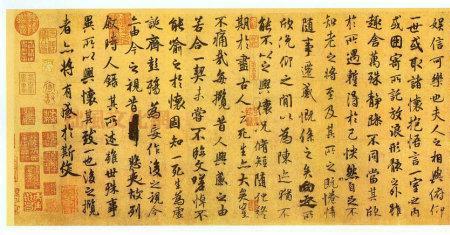 娛信可樂也夫人之相與俯仰
一世或取諸懷抱悟言一室之內
或因寄所託放浪形骸之外雖
趣舍萬殊靜躁不同當其欣
於所遇暫得於己快然自足不
知老之將至及其所之既惓情
隨事遷感慨係之矣向之所
欣俛仰之閒以為陳迹猶不
能不以之興懷況脩短隨化終
期於盡古人云死生亦大矣豈
不痛哉每攬昔人興感之由
若合一契未嘗不臨文嗟悼不
能喻之於懷固知一死生為虛
誕齊彭殤為妄作後之視今
亦由今之視昔悲夫故列
敘時人錄其所述雖世殊事
異所以興懷其致一也後之攬
者亦將有感於斯文